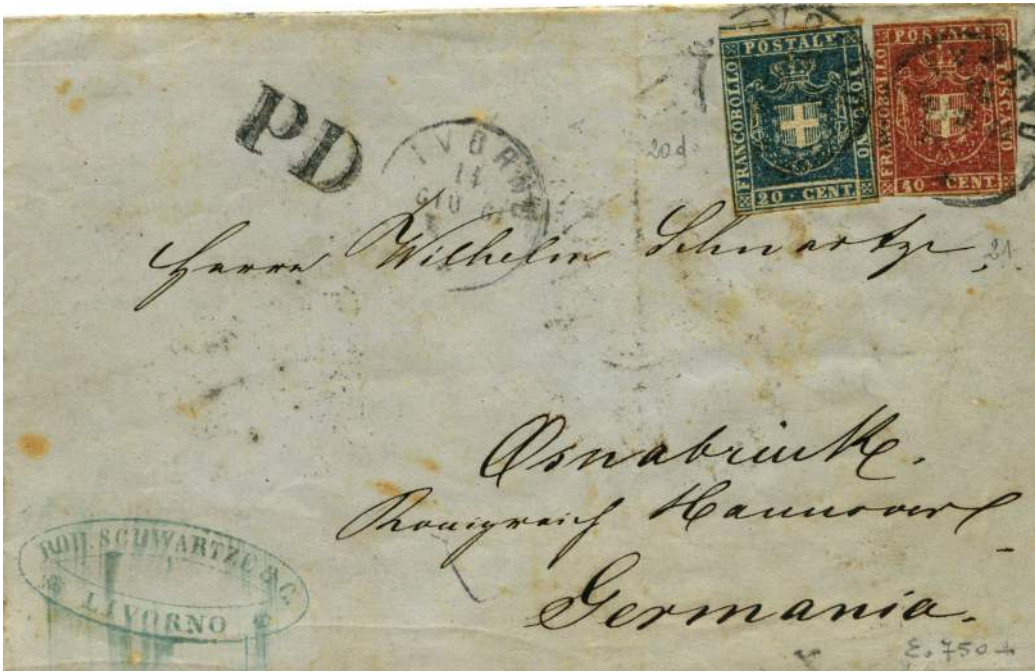 PD
IVORNO
11
GIU
20 d.
FRANCOBOLLO POSTALE TOSCANO
20 · CENT
FRANCOBOLLO POSTALE TOSCANO
40 · CENT
21
Herrn Wilhelm Schwartze,
Osnabrück.
Königreich Hannover
Germania.
SCHWARTZE & C.
LIVORNO
E. 750